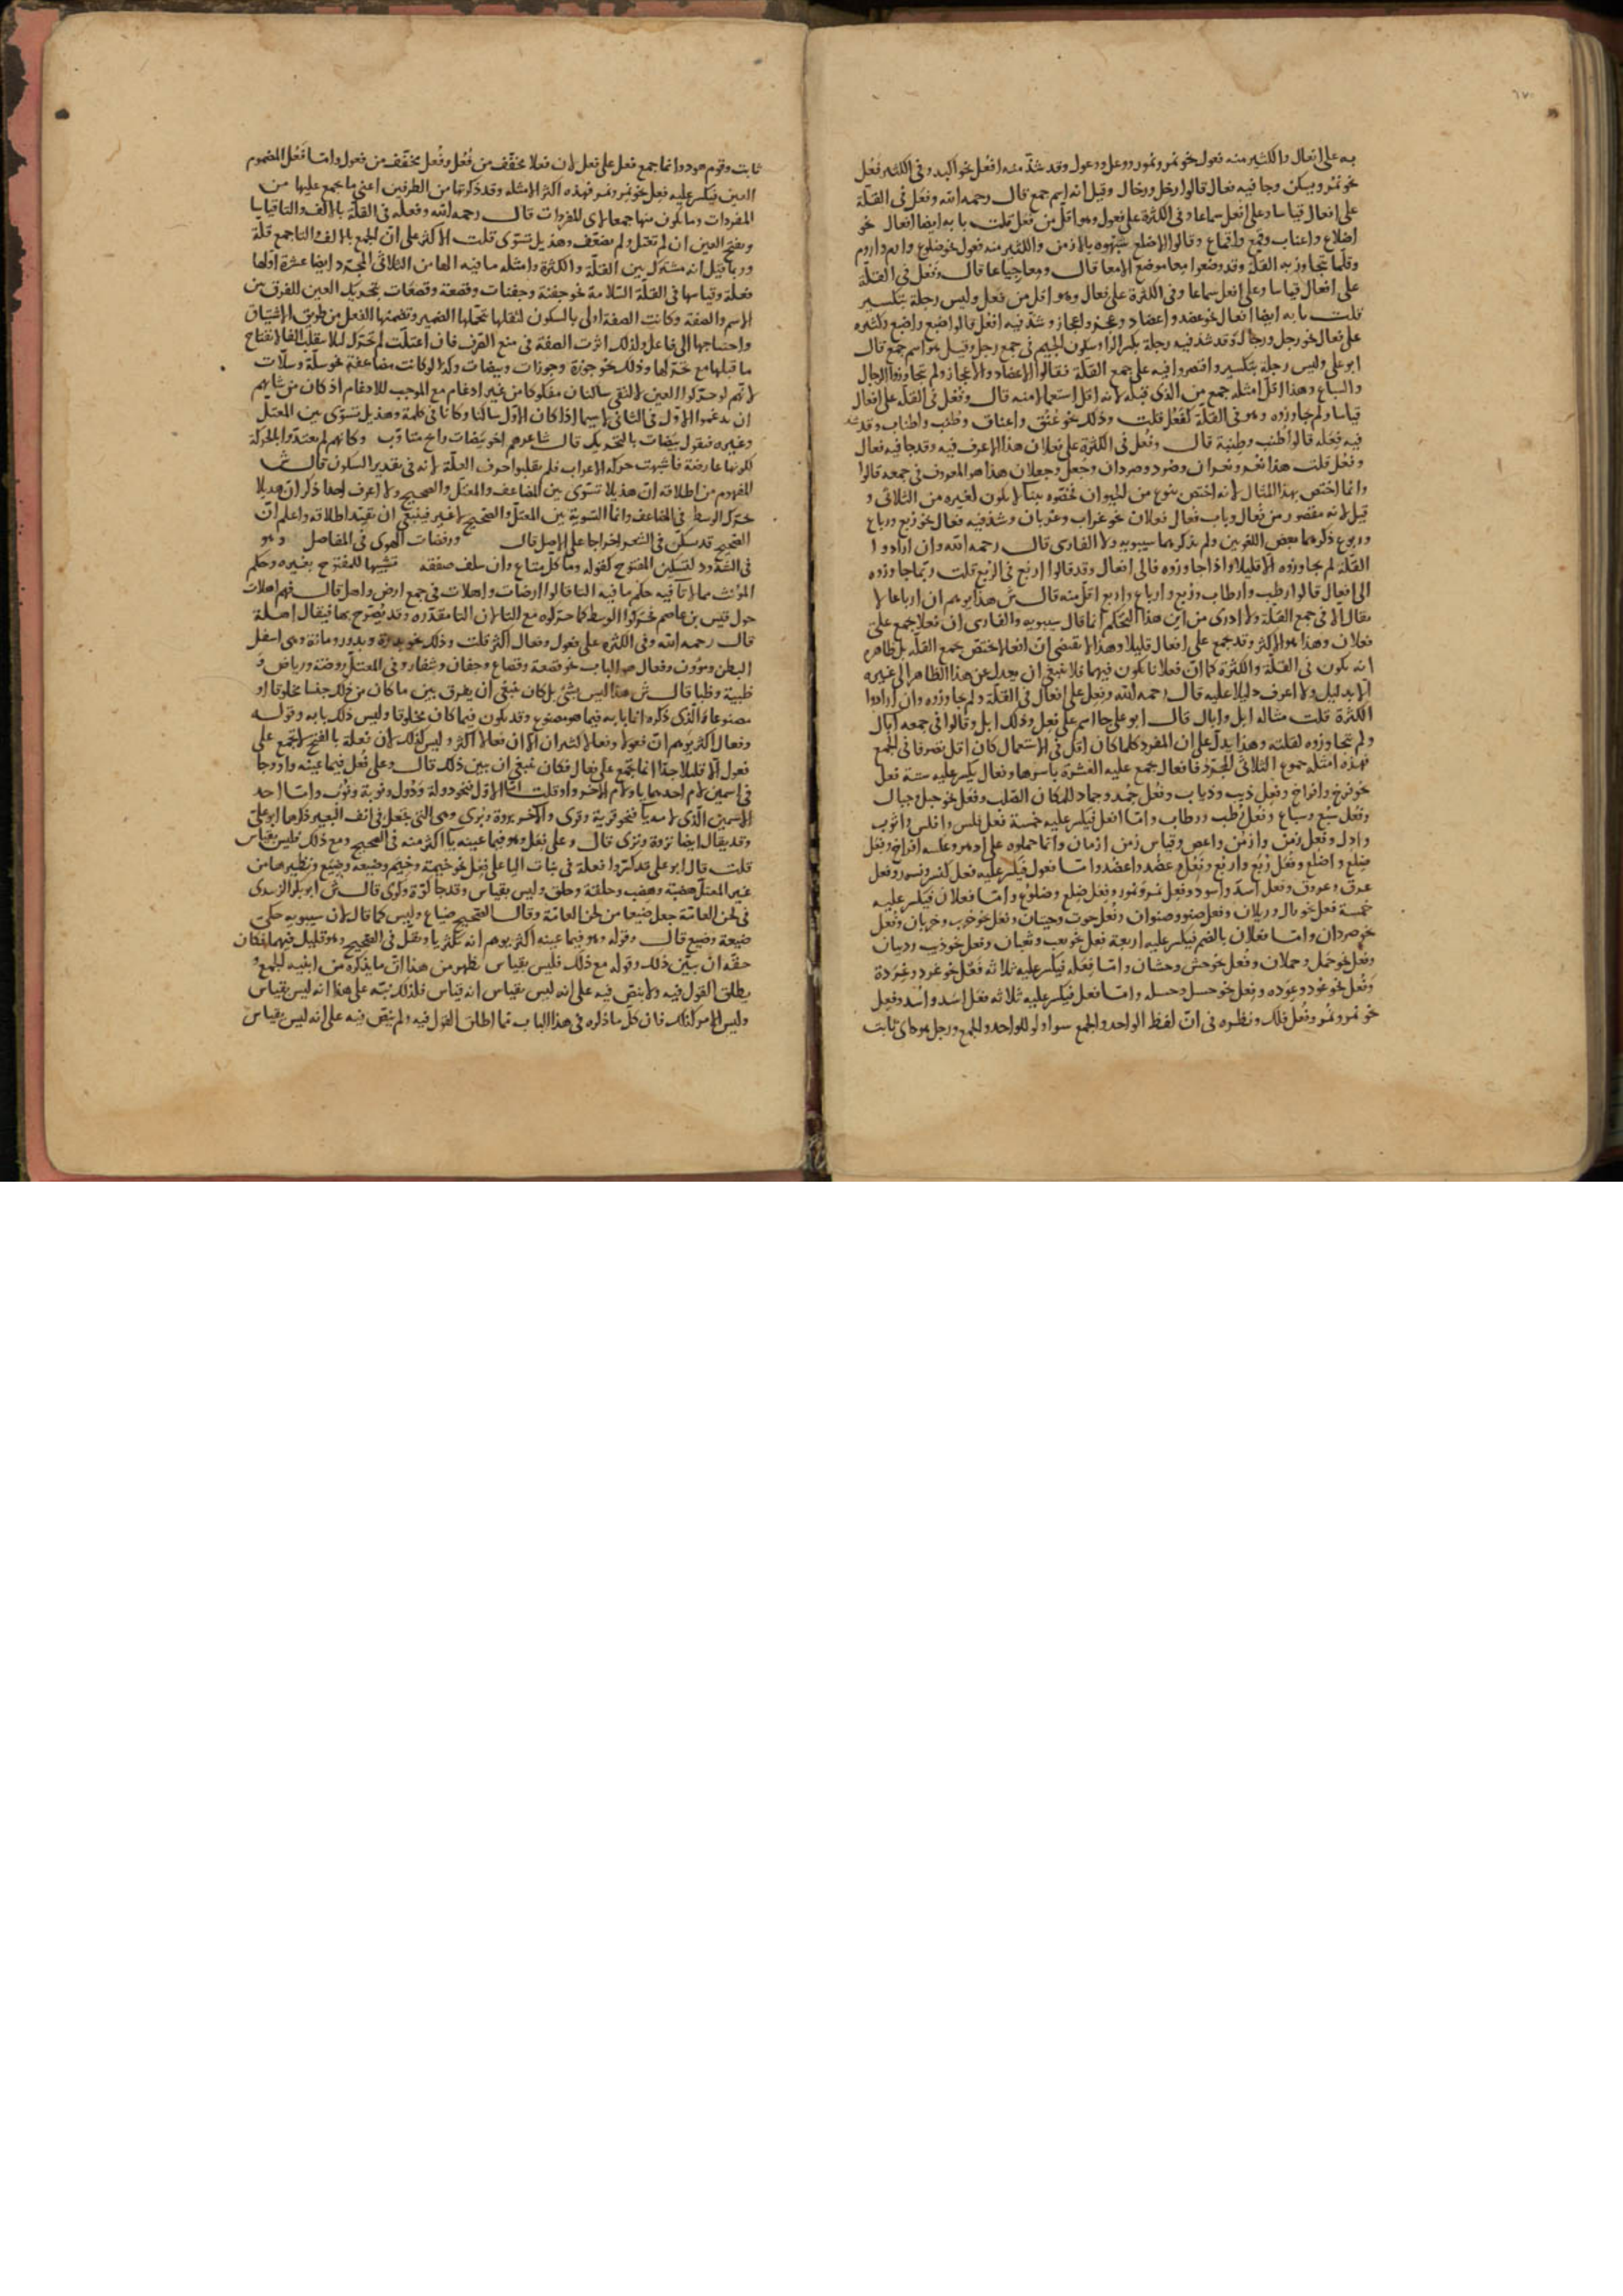 به على افعال والكثير منه فعول نحو نمر ونمور ووعل ووعول وقد شذ منه افعل نحو اكبد وفى الكثير فعل
نحو نمر ويسكن وجا فيه فعال قالوا رخل ورخال وقيل انه اسم جمع قال رحمه الله وفعل فى القلة
على افعال قياسا وعلى افعل سماعا وفى الكثرة على فعول وهو اقل من فعل قلت بابه ايضا افعال نحو
اضلاع واعناب وقمع واقماع وقالوا الاضلع شبهوه بالازمن والكثير منه فعول نحو ضلوع واروم
وقلما تجاوز به القلة وقد وضعوا معا موضع الامعا قال ومعا جياعا قال وفعل فى القلة
على افعال قياسا وعلى افعل سماعا وفى الكثرة على فعال وهو اقل من فعل وليس رجلة بتكسير
قلت بابه ايضا افعال نحو عضد واعضاد وعجز واعجاز وشذ فيه افعل قالوا ضبع واضبع وكثيره
على فعال نحو رجل ورجال وقد شذ فيه رجلة بكسر الرا وسكون الجيم فى جمع رجل وقيل هو اسم جمع قال
ابو على وليس رجلة بتكسير واقتصروا فيه على جمع القلة فقالوا الاعضاد والاعجاز ولم يتجاوزوا الرجال
والسباع وهذا اقل امثله جمع من الذى قبله لانه اقل استعمالا منه قال وفعل فى القلة على افعال
قياسا ولم يجاوزوه وهو فى القلة كفعل قلت وذلك نحو عنق واعناق وطنب واطناب وقد شذ
فيه فعله قالوا طنب وطنبة قال وفعل فى الكثرة على فعلان هذا الاعرف فيه وقد جا فيه فعال
وفعل قلت هذا نغر ونغران وصرد وصردان وجعل وجعلان هذا هو المعروف فى جمعه قالوا
وانما اختص بهذا المثال لانه اختص بنوع من الحيوان فخصوه ببنا لا يكون لغيره من الثلاثى و
قيل لانه مقصور من فعال وباب فعال فعلان نحو غراب وغربان وشذ فيه فعال نحو ربع ورباع
وربوع ذكرهما بعض اللغويين ولم يذكرهما سيبويه ولا الفارسى قال رحمه الله وان ارادوا
القلة لم يجاوزوه الا قليلا واذا جاوزوه فالى افعال وقد قالوا اربع فى الربع قلت ربما جاوزوه
الى افعال قالوا رطب وارطاب وربع وارباع واربع اقل منه قال ش هذا يوهم ان ارباعا لا
يقال الا فى جمع القلة ولا ادرى من اين هذا التحكم انما قال سيبويه والفارسى ان فعلا جمع على
فعلان وهذا هو الاكثر وقد جمع على افعال قليلا وهذا لا يقتضى ان افعالا يختص بجمع القلة بل ظاهره
انه يكون فى القلة والكثرة كما ان فعلانا يكون فيهما فلا ينبغى ان يعدل عن هذا الظاهر الى غيره
الا بدليل ولا اعرف دليلا عليه قال رحمه الله وفعل على افعال فى القلة ولم يجاوزوه وان ارادوا
الكثرة قلت مثاله ابل وابال قال ابو على جا اسم على فعل وذلك ابل وقالوا فى جمعه ابال
ولم يتجاوزوه لقلته وهذا يدل على ان المفرد كلما كان اقل فى الاستعمال كان اقل تصرفا فى الجمع
فهذه امثلة جموع الثلاثى المجرد فافعال جمع عليه العشرة باسرها وفعال يكسر عليه ستة فعل
نحو فرخ وافراخ وفعل ذيب وذياب وفعل جمد وجماد للمكان الصلب وفعل نحو جبل وجبال
وفعل سبع وسباع وفعل رطب ورطاب واما افعل فيكسر عليه خمسة فعل فلس وافلس واثوب
وادل وفعل زمن وازمن واعصى وقياس زمن ازمان وانما حملوه على ادهر وعكسه افراخ وفعل
ضلع واضلع وفعل ربع واربع وفعل عضد واعضد واما فعول فيكسر عليه فعل كنسر ونسور وفعل
عرق وعروق وفعل اسد واسود وفعل نمر ونمور وفعل ضلع وضلوع واما فعلان فيكسر عليه
خمسة فعل نحو رال وريلان وفعل صنو وصنوان وفعل حوت وحيتان وفعل نحو خرب وخربان وفعل
نحو صردان واما فعلان بالضم فيكسر عليه اربعة فعل نحو ثعب وثعبان وفعل نحو ذيب وذيبان
وفعل نحو حمل وحملان وفعل نحو حش وحشان واما فعله فيكسر عليه ثلاثه فعل نحو غرد وغردة
وفعل نحو عود وعوده وفعل نحو حسل وحسله واما فعل فيكسر عليه ثلاثه فعل اسد واسد وفعل
نحو نمر ونمر وفعل فلك ونظيره فى ان لفظ الواحد والجمع سوا ولو للواحد والجمع ورجل هود اى ثابت
ثابت وقوم هود وانما جمع فعل على فعل لان فعلا مخفف من فعل وفعل مخفف من فعول واما فعل المضموم
العين فيكسر عليه فعل نحو نمر ونمر فهذه اكثر الامثله وقد ذكرتها من الطرفين اعنى ما يجمع عليها من
المفردات وما يكون منها جمعا لاى المفردات قال رحمه الله وفعله فى القلة بالالف والتا قياسا
وبفتح العين ان لم تعتل ولم تضعف وهذيل تسوى قلت الاكثر على ان الجمع بالالف والتا جمع قلة
وربما قيل انه مشترك بين القلة والكثرة وامثله ما فيه الها من الثلاثى المجرد ايضا عشرة اولها
فعلة وقياسها فى القلة السلامة نحو جفنة وجفنات وقصعة وقصعات بتحريك العين للفرق بين
الاسم والصفة وكانت الصفة اولى بالسكون لثقلها بتحملها الضمير وتضمنها الفعل من طريق الاشتقاق
واحتياجها الى فاعل ولذلك اثرت الصفة فى منع الصرف فان اعتلت لم تحرك ليلا يقلب الفا لانفتاح
ما قبلها مع تحركها وذلك نحو جوزة وجوزات وبيضات وكذا لو كانت مضاعفة نحو سلة وسلات
لانهم لو حركوا العين لالتقى ساكنان مفكوكا من غير ادغام مع الموجب للادغام اذ كان من شانهم
ان يدغموا الاول فى الثانى لا سيما اذا كان الاول ساكنا وكانا فى كلمة وهذيل تسوى بين المعتل
وغيره فيقول بيضات بالتحريك قال شاعرهم اخو بيضات رايح متاوب وكانهم لم يعتدوا بالحركة
لكونها عارضة فاشبهت حركة الاعراب فلم يقلبوا حرف العلة لانه فى تقدير السكون قال ش
المفهوم من اطلاقه ان هذيلا تسوى بين المضاعف والمعتل والصحيح ولا اعرف احدا ذكر ان هذيلا
تحرك الوسط فى المضاعف وانما التسوية بين المعتل والصحيح لا غير فينبغى ان يقيد اطلاقه واعلم ان
الصحيح قد سكن فى الشعر اخراجا على الاصل قال ورفضات الهوى فى المفاصل وهو
فى الشذوذ لتسكين المفتوح كقوله وما كل مبتاع وان سلف صفقه تشبيها للمفتوح بغيره وحكم
المؤنث مما لا تا فيه حكم ما فيه التا قالوا ارضات واهلات فى جمع ارض واهل قال فهم اهلات
حول قيس بن عاصم فحركوا الوسط كما حركوه مع التا لان التا مقدره وقد يصرح بها فيقال اهلة
قال رحمه الله وفى الكثره على فعول وفعال اكثر قلت وذلك نحو بدرة وبدور ومانة وهى اسفل
البطن ومؤون وفعال هو الباب نحو قصعة وقصاع وجفان وشفار وفى المعتل روضة ورياض و
ظبية وظبا قال ش هذا ليس بشئ بل كان ينبغى ان يفرق بين ما كان من ذلك جنسا مخلوقا او
مصنوعا والذى ذكره انما بابه فيما هو مصنوع وقد يكون فيما كان مخلوقا وليس ذلك بابه وقوله
وفعال اكثر يوهم ان فعولا وفعالا كثيران الا ان فعالا اكثر وليس كذلك لان فعلة بالفتح لا تجمع على
فعول الا قليلا جدا انما تجمع على فعال فكان ينبغى ان يبين ذلك قال وعلى فعل فيما عينه واو وجا
فى اسمين لام احدهما يا ولام الاخر واو قلت اما الاول فنحو دولة ودول ونوبة ونوب واما احد
الاسمين الذى لامه يا فنحو قرية وقرى والاخر بروة وبرى وهى التى تجعل فى انف البعير ذكرها ابو على
وقد يقال ايضا نزوة ونزى قال وعلى فعل وهو فيما عينه يا اكثر منه فى الصحيح ومع ذلك فليس بقياس
قلت قال ابو على قد كسروا فعلة فى بنات اليا على فعل نحو خيمة وخيم وضيعة وضيع ونظيرها من
غير المعتل هضبة وهضب وحلقة وحلق وليس بقياس وقد جا كوة وكوى قال ش ابو بكر الزبيدى
فى لحن العامة جعل ضيعا من لحن العامة وقال الصحيح ضياع وليس كما قال لان سيبويه حكى
ضيعة وضيع قال وقوله وهو فيما عينه اكثر يوهم انه يكثر يا ويقل فى الصحيح وهو قليل فيهما فكان
حقه ان يبين ذلك وقوله مع ذلك فليس بقياس يظهر من هذا ان ما يذكره من ابنيه الجمع و
يطلق القول فيه ولا ينص فيه على انه ليس بقياس انه قياس فلذلك نبه على هذا انه ليس بقياس
وليس الامر كذلك فان كل ما ذكره فى هذا الباب مما اطلق القول فيه ولم ينص فيه على انه ليس بقياس